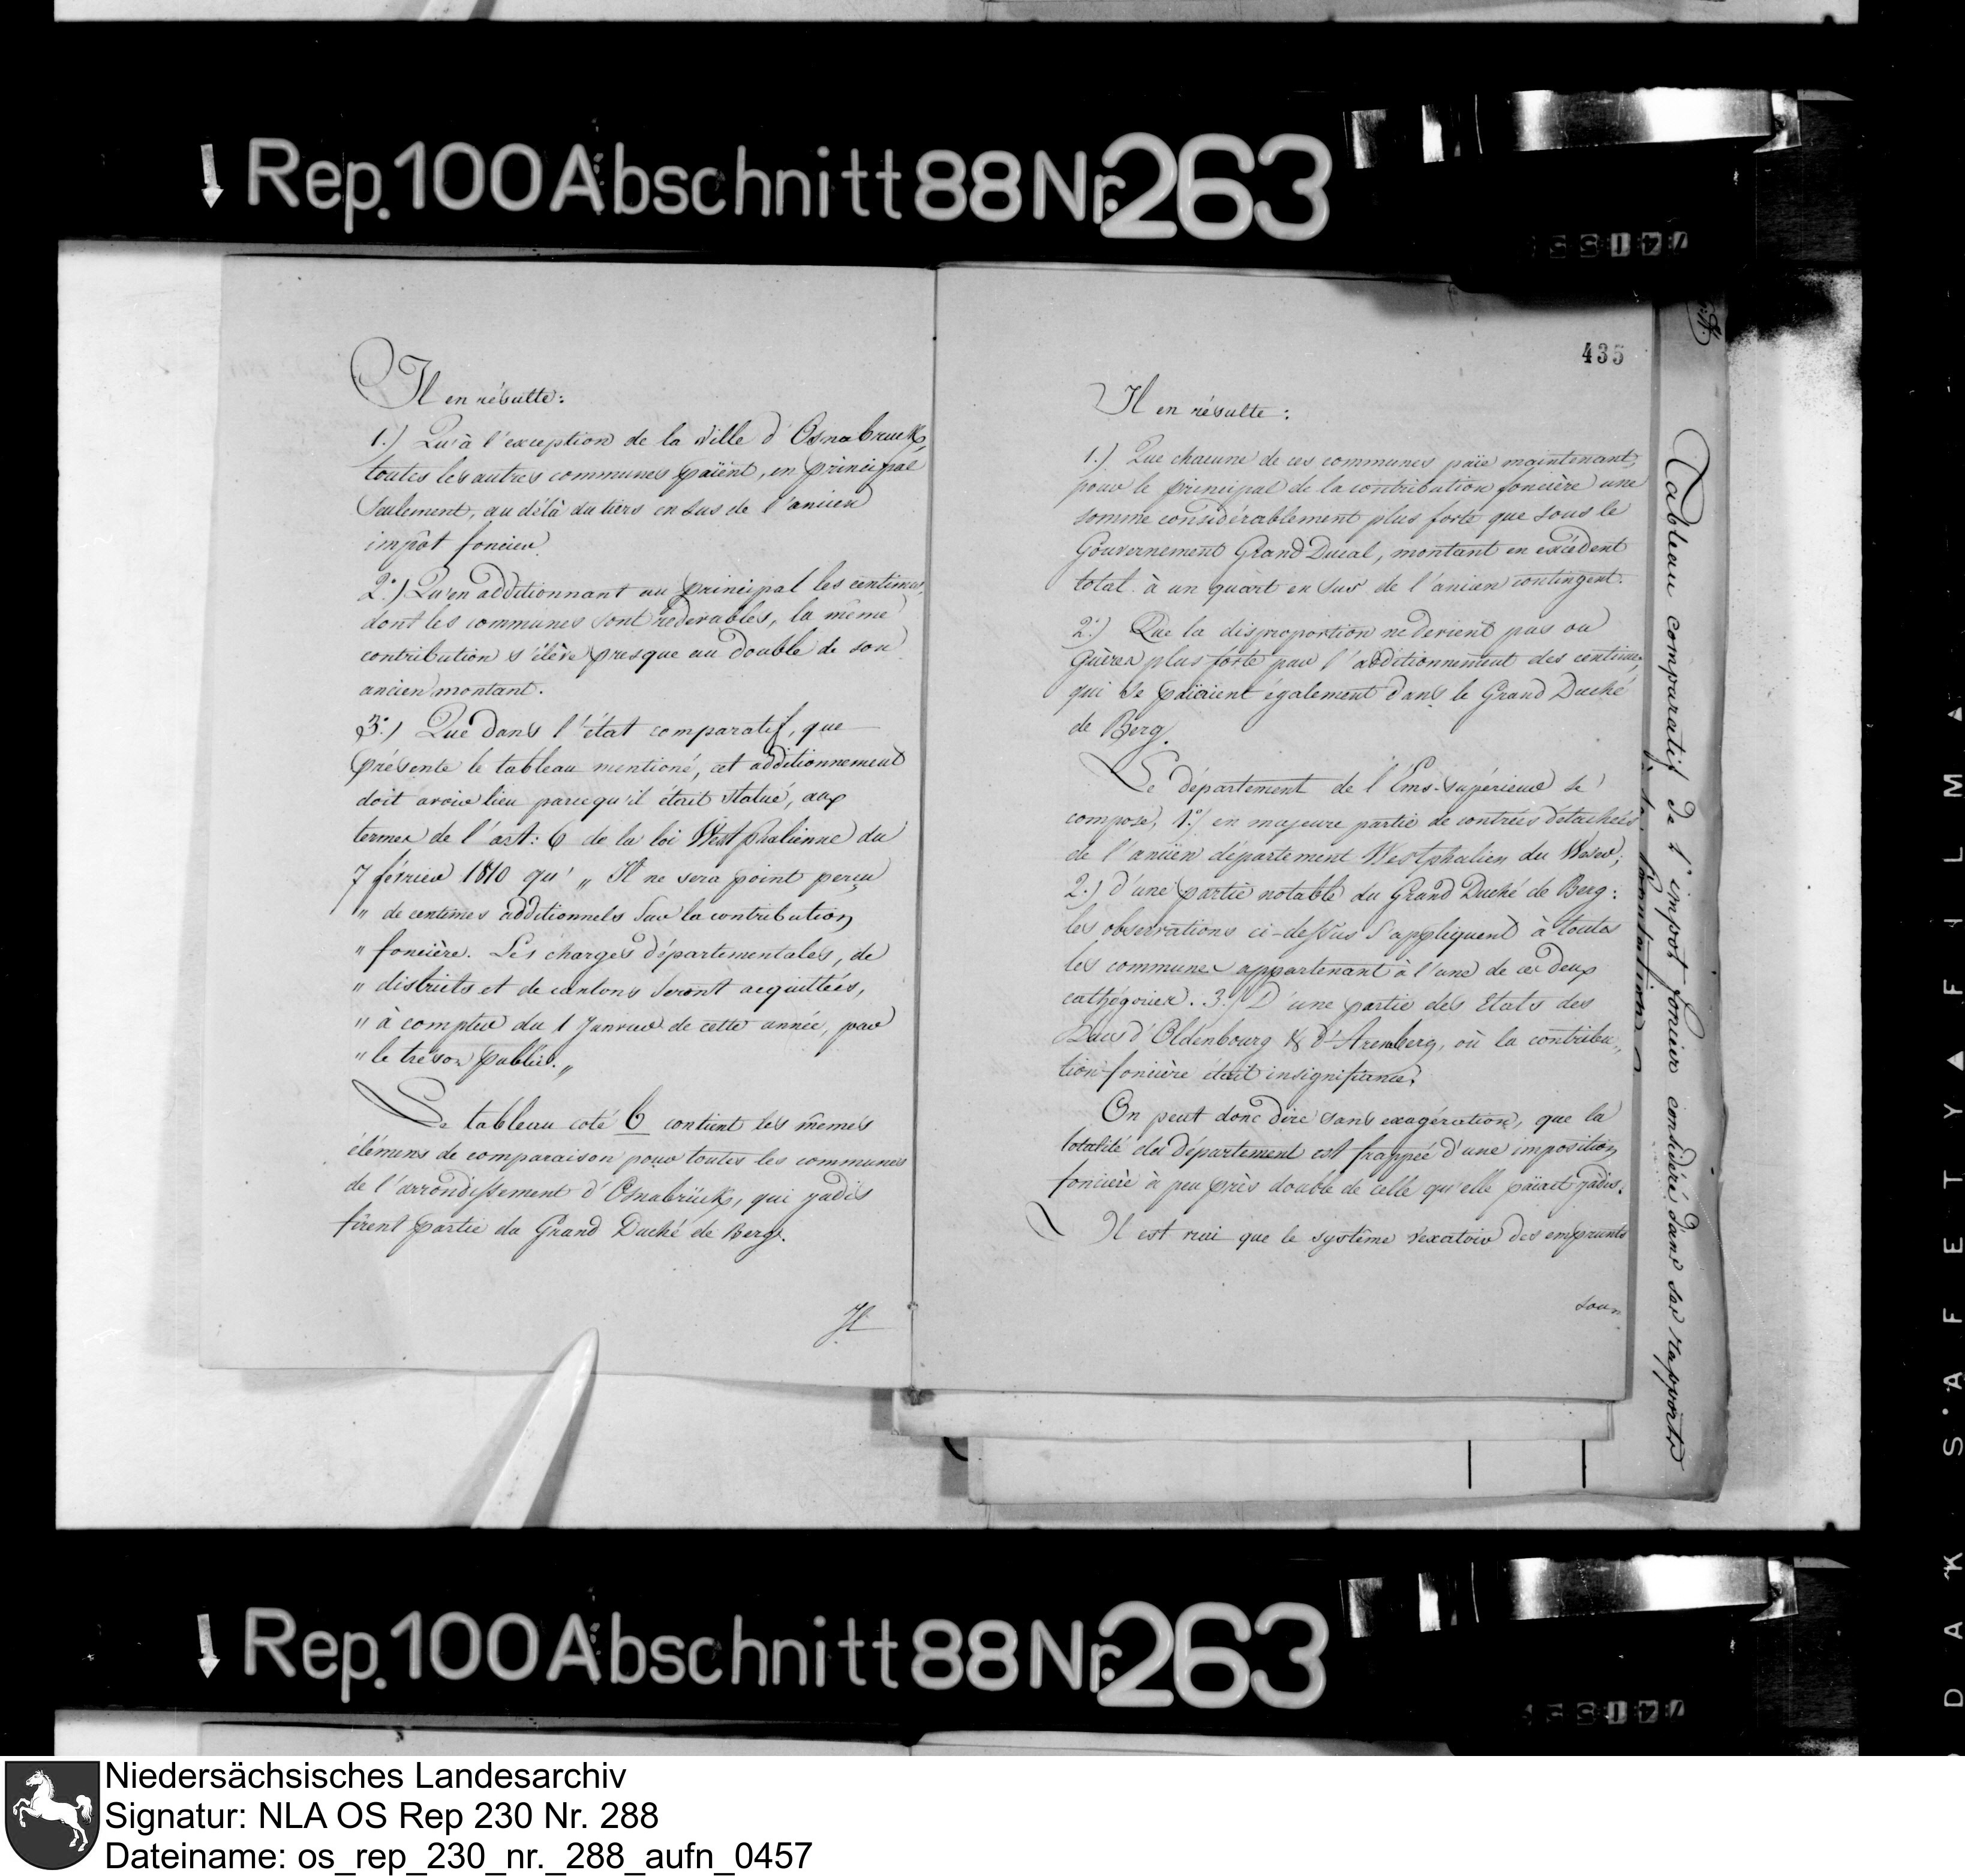 Rep. 100 Abschnitt 88 Nr. 263
Il en résulte:
1.) Qu'à l'exception de la ville d'Osnabruck,
toutes les autres communes païent, en principal
seulement, au délà du tiers en sus de l'ancien
impôt foncier.
2.) Qu'en additionnant au principal les centimes,
dont les communes sont redevables, la même
contribution s'élève presque au double de son
ancien montant.
3.) Que dans l'état comparatif, que
présente le tableau mentioné, cet additionnement
doit avoir lieu parcequ'il était statué, aux
termes de l'art: 6 de la loi Westphalienne du
7 février 1810 qu' „ Il ne sera point perçu
" de centimes additionnels sur la contribution
" foncière. Les charges départementales, de
" districts et de cantons seront acquittées,
" à compter du 1 Janvier de cette année, par
" le trésor public. „
Le tableau coté 6 contient les mêmes
élémens de comparaison pour toutes les communes
de l'arrondissement d'Osnabrück, qui jadis
firent partie du Grand Duché de Berg.
Il
435
Il en résulte:
1.) Que chacune de ces communes païe maintenant,
pour le principal de la contribution foncière une
somme considérablement plus forte que sous le
Gouvernement Grand Ducal, montant en excédent
total à un quart en sus de l'ancien contingent.
2.) Que la disproportion ne devient pas ou
guères plus forte par l'additionnement des centimes,
qui se païaient également dans le Grand Duché
de Berg.
Le département de l'Ems-supérieur se
compose, 1.) en majeure partie de contrées détachées
de l'ancien département Westphalien du Weser;
2.) d'une partie notable du Grand Duché de Berg:
les observations ci-dessus s'appliquent à toutes
les communes appartenant à l'une de ces deux
cathégories. 3.) D'une partie des Etats des
Ducs d'Oldenbourg & d'Aremberg, où la contribu„
tion foncière était insignifiante.
On peut donc dire sans exagération, que la
totalité du Département est frappée d'une imposition
foncière à peu près double de celle qu'elle païait jadis.
Il est vrai que le système vexatoire des emprunts
sous
Tableau comparatif de l'impôt foncier considéré dans ses rapports
à la
Rep. 100 Abschnitt 88 Nr. 263
SAFETY FILM
Niedersächsisches Landesarchiv
Signatur: NLA OS Rep 230 Nr. 288
Dateiname: os_rep_230_nr._288_aufn_0457